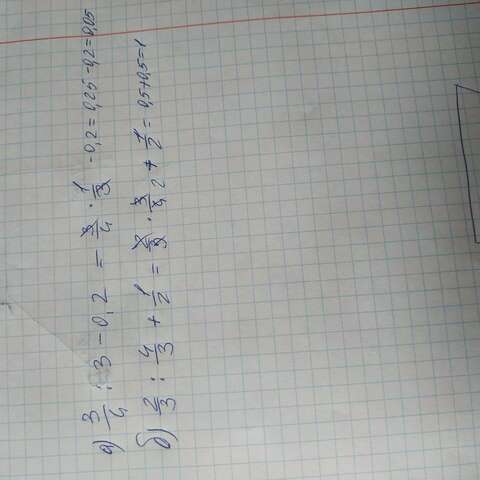 а) 3/4 : 3 - 0,2 = 3/4 · 1/3 - 0,2 = 0,25 - 0,2 = 0,05
б) 2/3 : 4/3 + 1/2 = 2/3 · 3/4 2 + 1/2 = 0,5 + 0,5 = 1